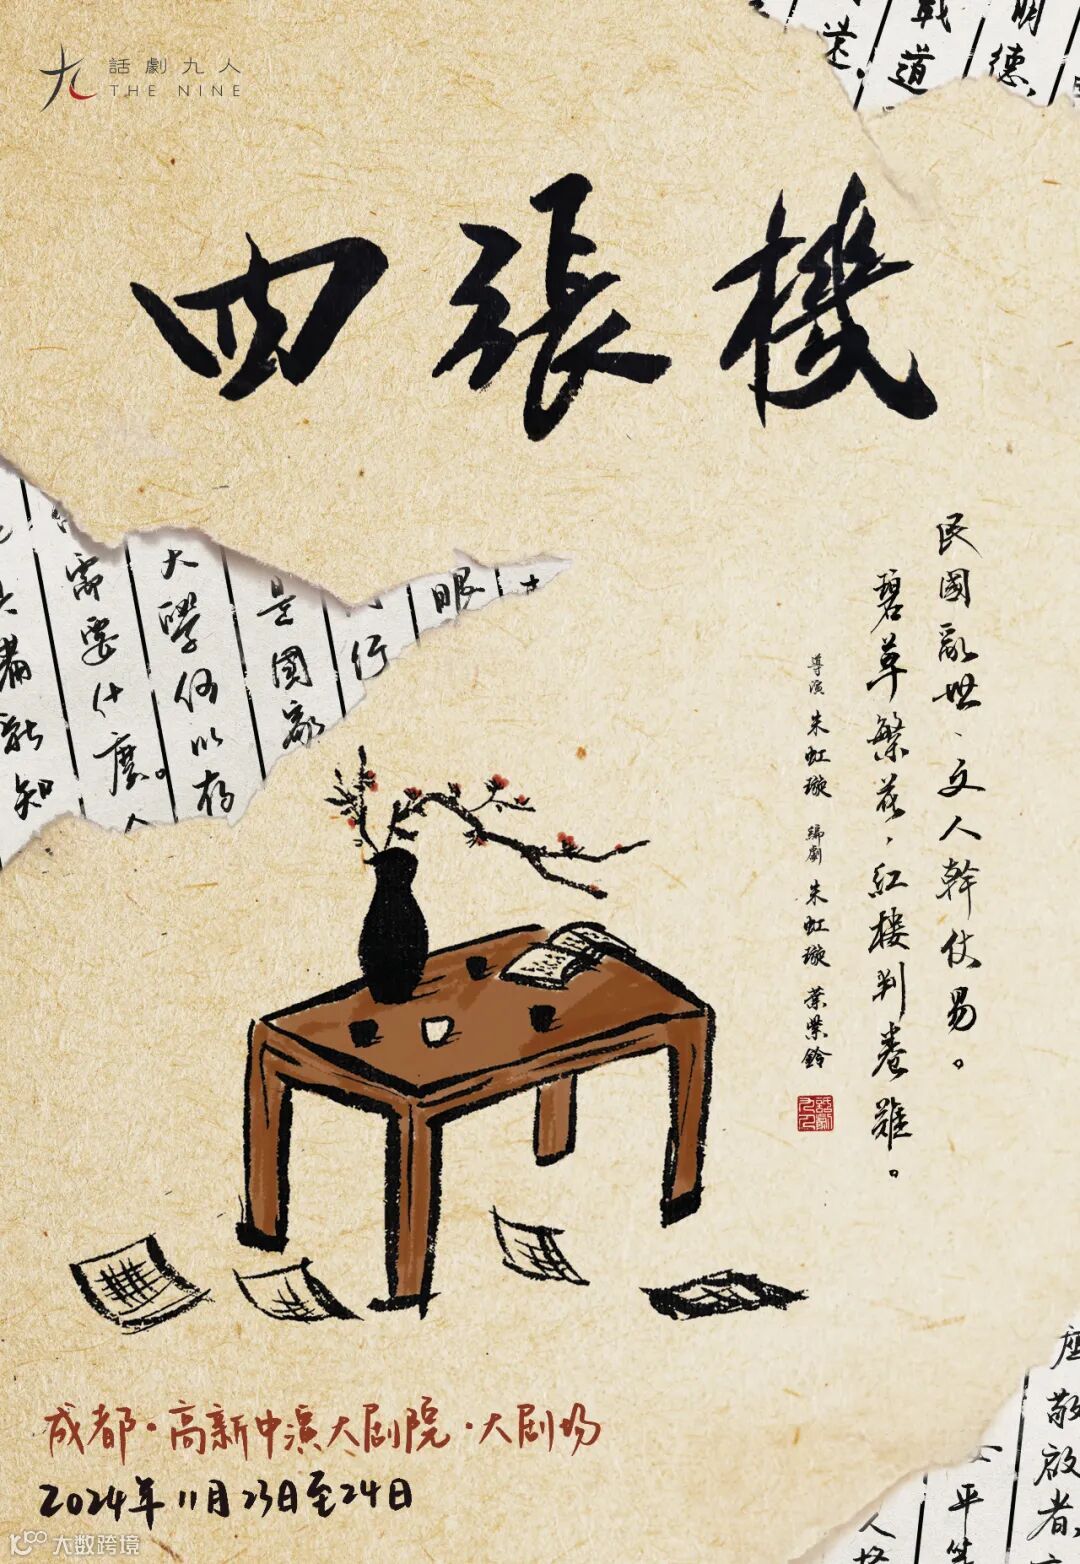 話劇九人
THE NINE
戰道
明德
四張機
需要什麼。
大學何以存
是國家
行
眼
知
民國亂世、文人幹仗易。
碧草繁花，紅樓判卷難。
導演 朱虹璇 編劇 朱虹璇 葉紫鈴
話劇九人
成都·高新中演大剧院·大剧场
2024年11月23日至24日
座
敬啟者
平
人格
大数跨境